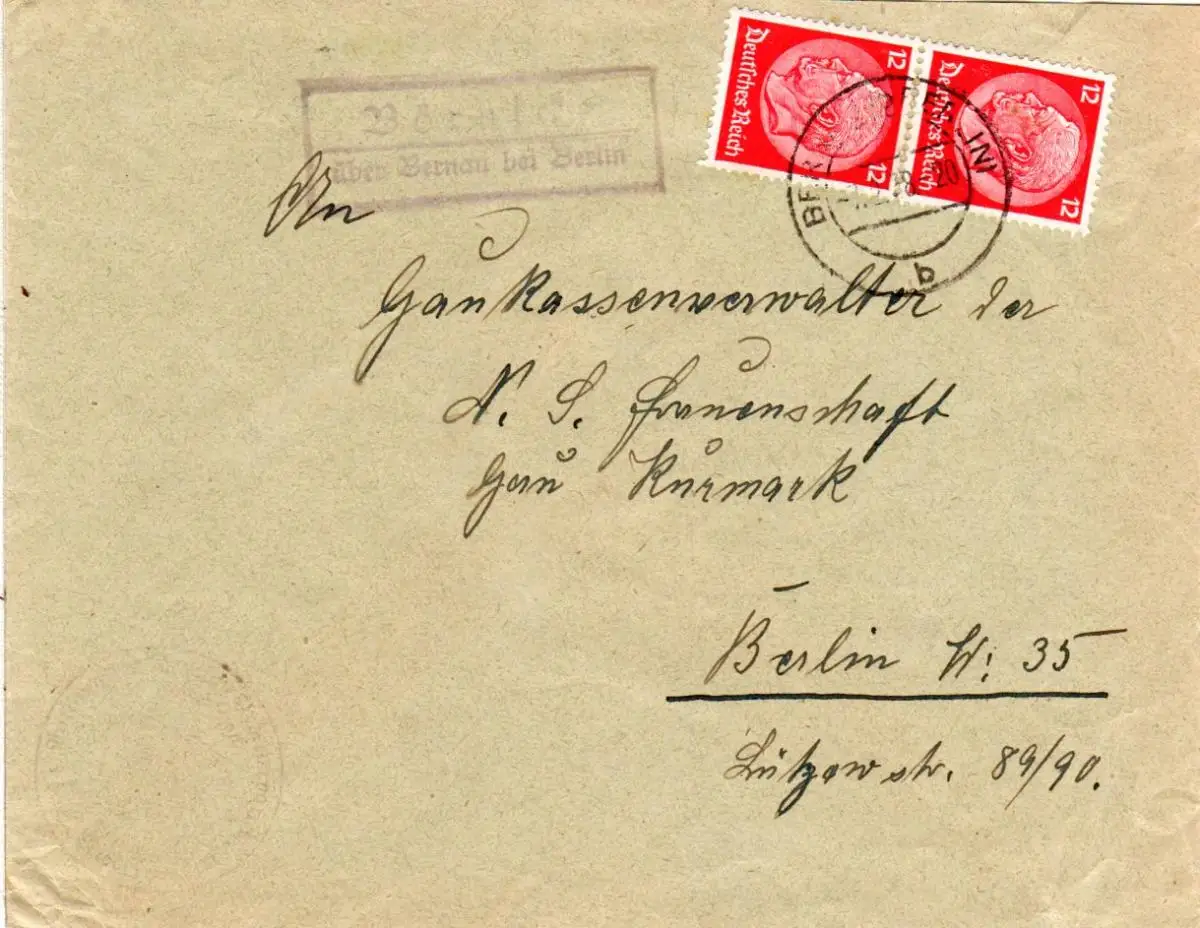 über Bernau bei Berlin
Deutsches Reich 12 12
Deutsches Reich 12 12
An
Gaukassenverwalter der
N. S. Frauenschaft
Gau Kurmark
Berlin W: 35
Lützowstr. 89/90.